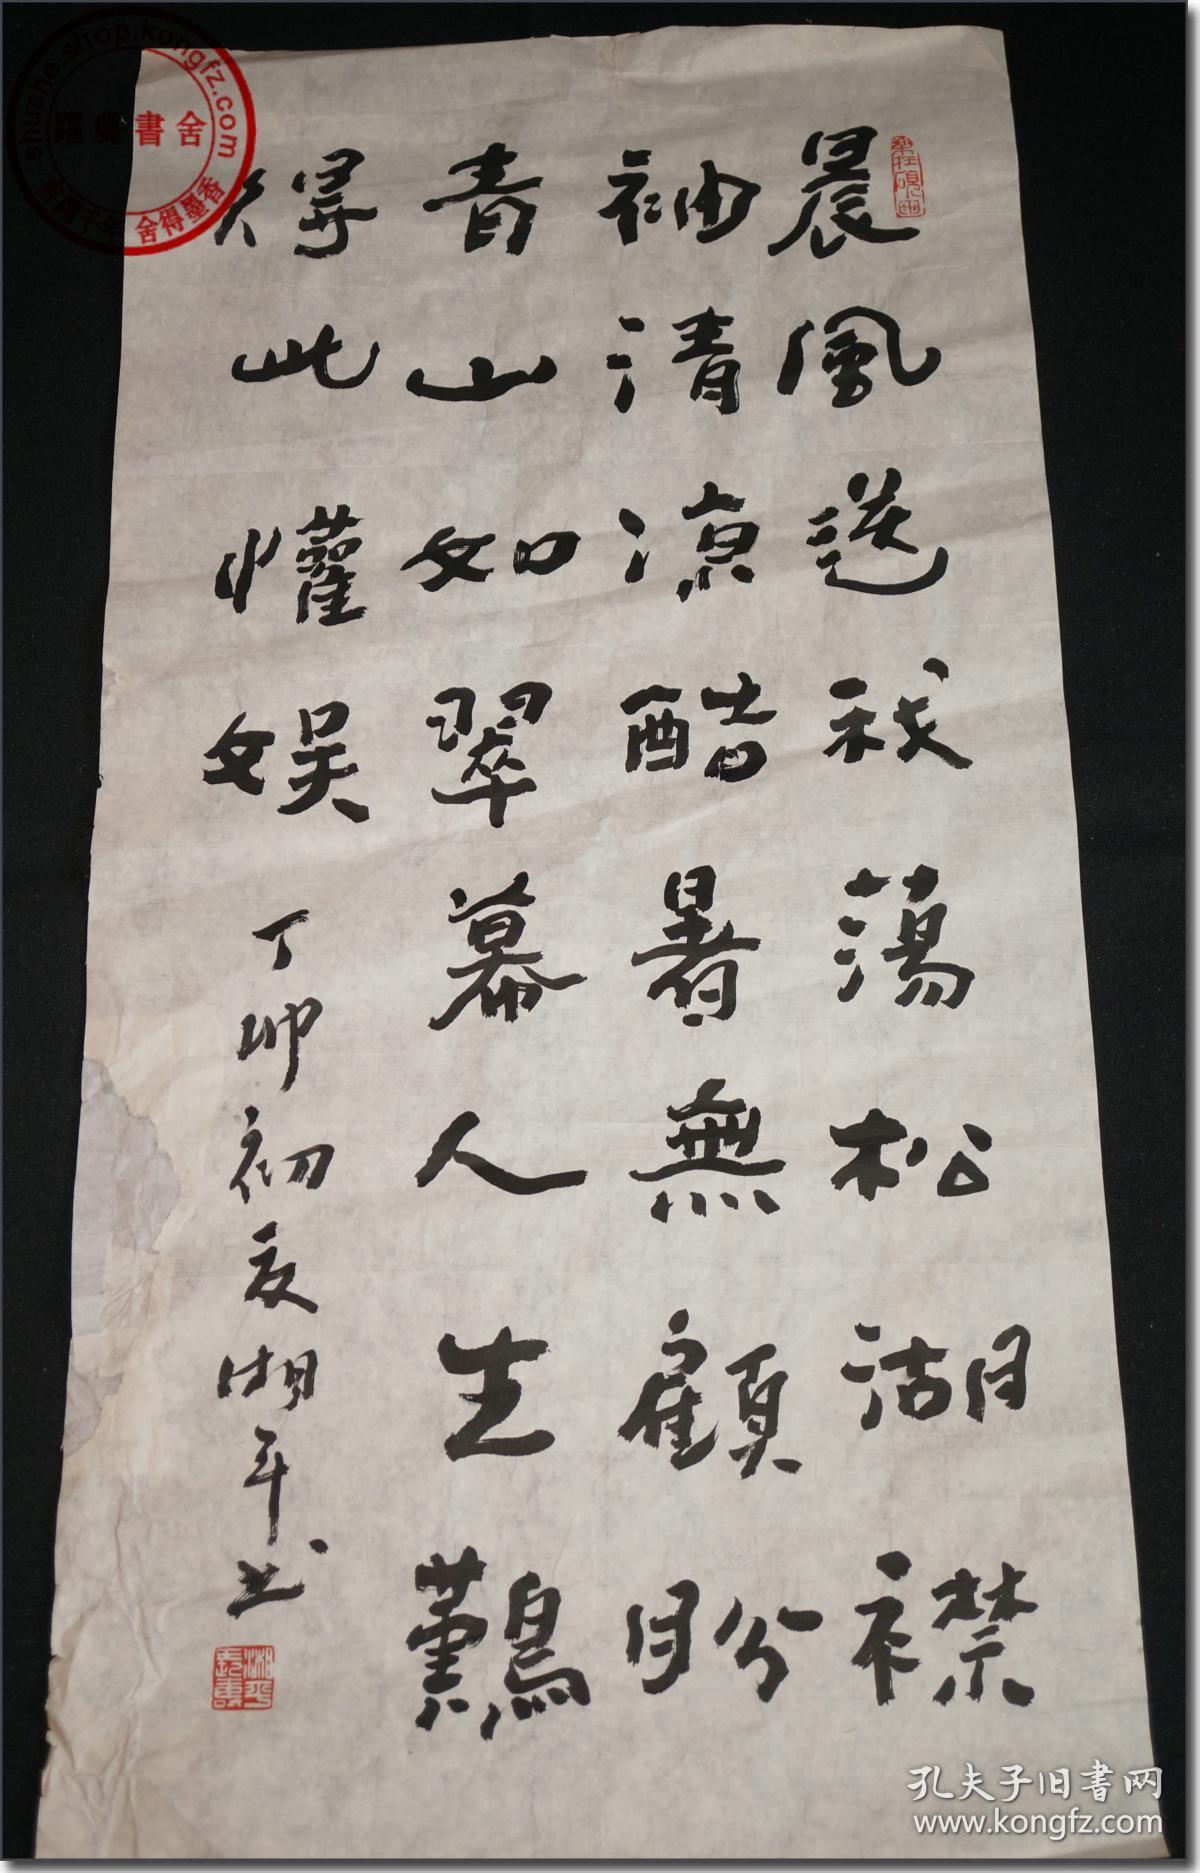 晨風送我蕩松湖襟
袖清涼酷暑無顧盼
青山如翠幕人生難
得此懽娱
丁卯初夏湘平书
shushe.shop.kongfz.com
書舍
舍得墨香
孔夫子旧书网
www.kongfz.com